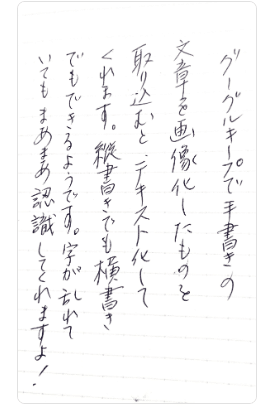 グーグルキープで手書きの
文章を画像化したものを
取り込むと、テキスト化して
くれます。縦書きでも横書き
でもできるようです。字が乱れて
いてもまあまあ認識してくれますよ!